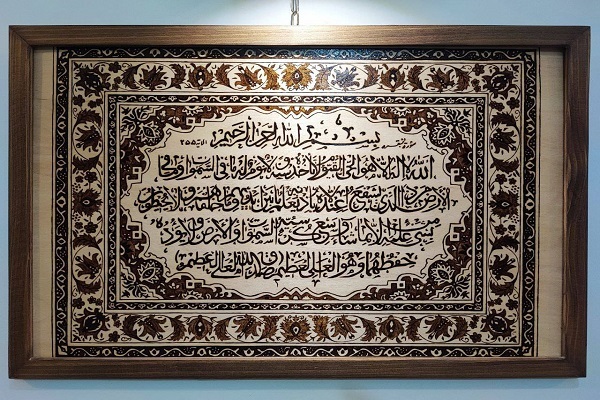 بسم الله الرحمن الرحيم ٢٥٥
الله لا اله الا هو الحي القيوم لا تأخذه سنة ولا نوم له ما في السموات وما في
الارض من ذا الذي يشفع عنده الا باذنه يعلم ما بين ايديهم وما خلفهم ولا يحيطون
بشيء من علمه الا بما شاء وسع كرسيه السموات والارض ولا يؤده
حفظهما وهو العلي العظيم صدق الله العلي العظيم